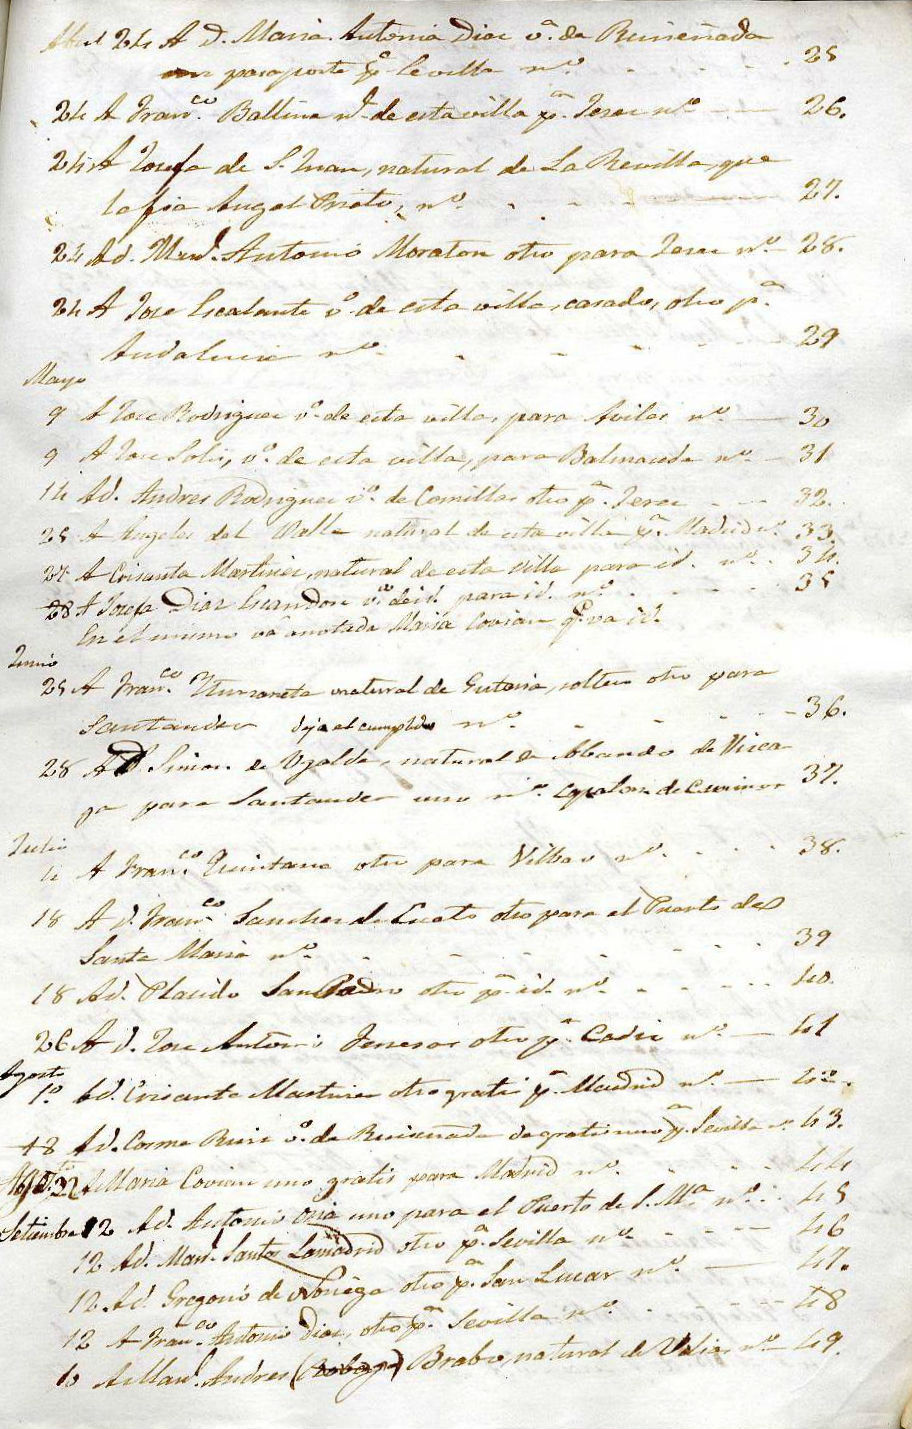 Abril 24 A d. Maria Antonia Diaz v.ª de Ruiseñada
pasaporte p.ª Sevilla n.º - - - - 25
24 A Fran.co Ballina n.l de esta villa p.ª Jerez n.º — 26.
24 A Josefa de S. Juan, natural de La Revilla, que
la fia Angel Prieto, n.º - - - 27.
24 A d. Man.l Antonio Moraton otro para Jerez n.º - 28.
24 A Jose Escalante v.º de esta villa, casado, otro p.ª
Andalucia n.º - - - - 29
Mayo
9 A Jose Rodriguez v.º de esta villa, para Aviles n.º — 30
9 A Jose Solis, v.º de esta villa, para Balmaseda n.º - 31
14 A d. Andres Rodriguez v.º de Comillas otro p.ª Jerez - - - 32.
25 A Angeles del Valle natural de esta villa p.ª Madrid n.º 33.
27 A Crisanta Martinez, natural de esta villa para id. n.º - 34.
28 A Josefa Diaz Escandon v.ª de id. para id. n.º - - - - 35
En el mismo va anotada Maria Covian q.e va id.
Junio
25 A Fran.co natural de Gutaria, soltero otro para
Santander deja el cumplido n.º - - - - 36.
28 A D. Simon de Ugalde, natural de Abando de Visca
ya para Santander uno n.º de Caminos 37.
Julio
4 A Fran.co Quintana otro para Vilbao n.º - - - - 38.
18 A d. Fran.co Sanchez de Cueto otro para el Puerto de
Santa Maria n.º - - - - - - - 39
18 A d. Placido San Pedro otro p.ª id. n.º - - - - - 40.
26 A d. Jose Antonio otro p.ª Cadiz n.º — 41
Agosto
1.º A d. Crisanto Martinez otro gratis p.ª Madrid n.º — 42.
18 A d. Cosme Ruiz v.º de Ruiseñada de gratis uno p.ª Sevilla n.º 43.
Ag.to 22 A Maria Covian uno gratis para Madrid n.º - - - - 44
Setiembre 12 A d. Antonio uno para el Puerto de S. M.ª n.º - - 45
12 A d. Man.l Santos Lamadrid otro p.ª Sevilla n.º - - - - 46
12 A d. Gregorio de Noriega otro p.ª San Lucar n.º — 47.
12 A Fran.co Antonio Diaz, otro p.ª Sevilla n.º - - - - 48
10 A Man.l Andres Brabo, natural de n.º - 49.